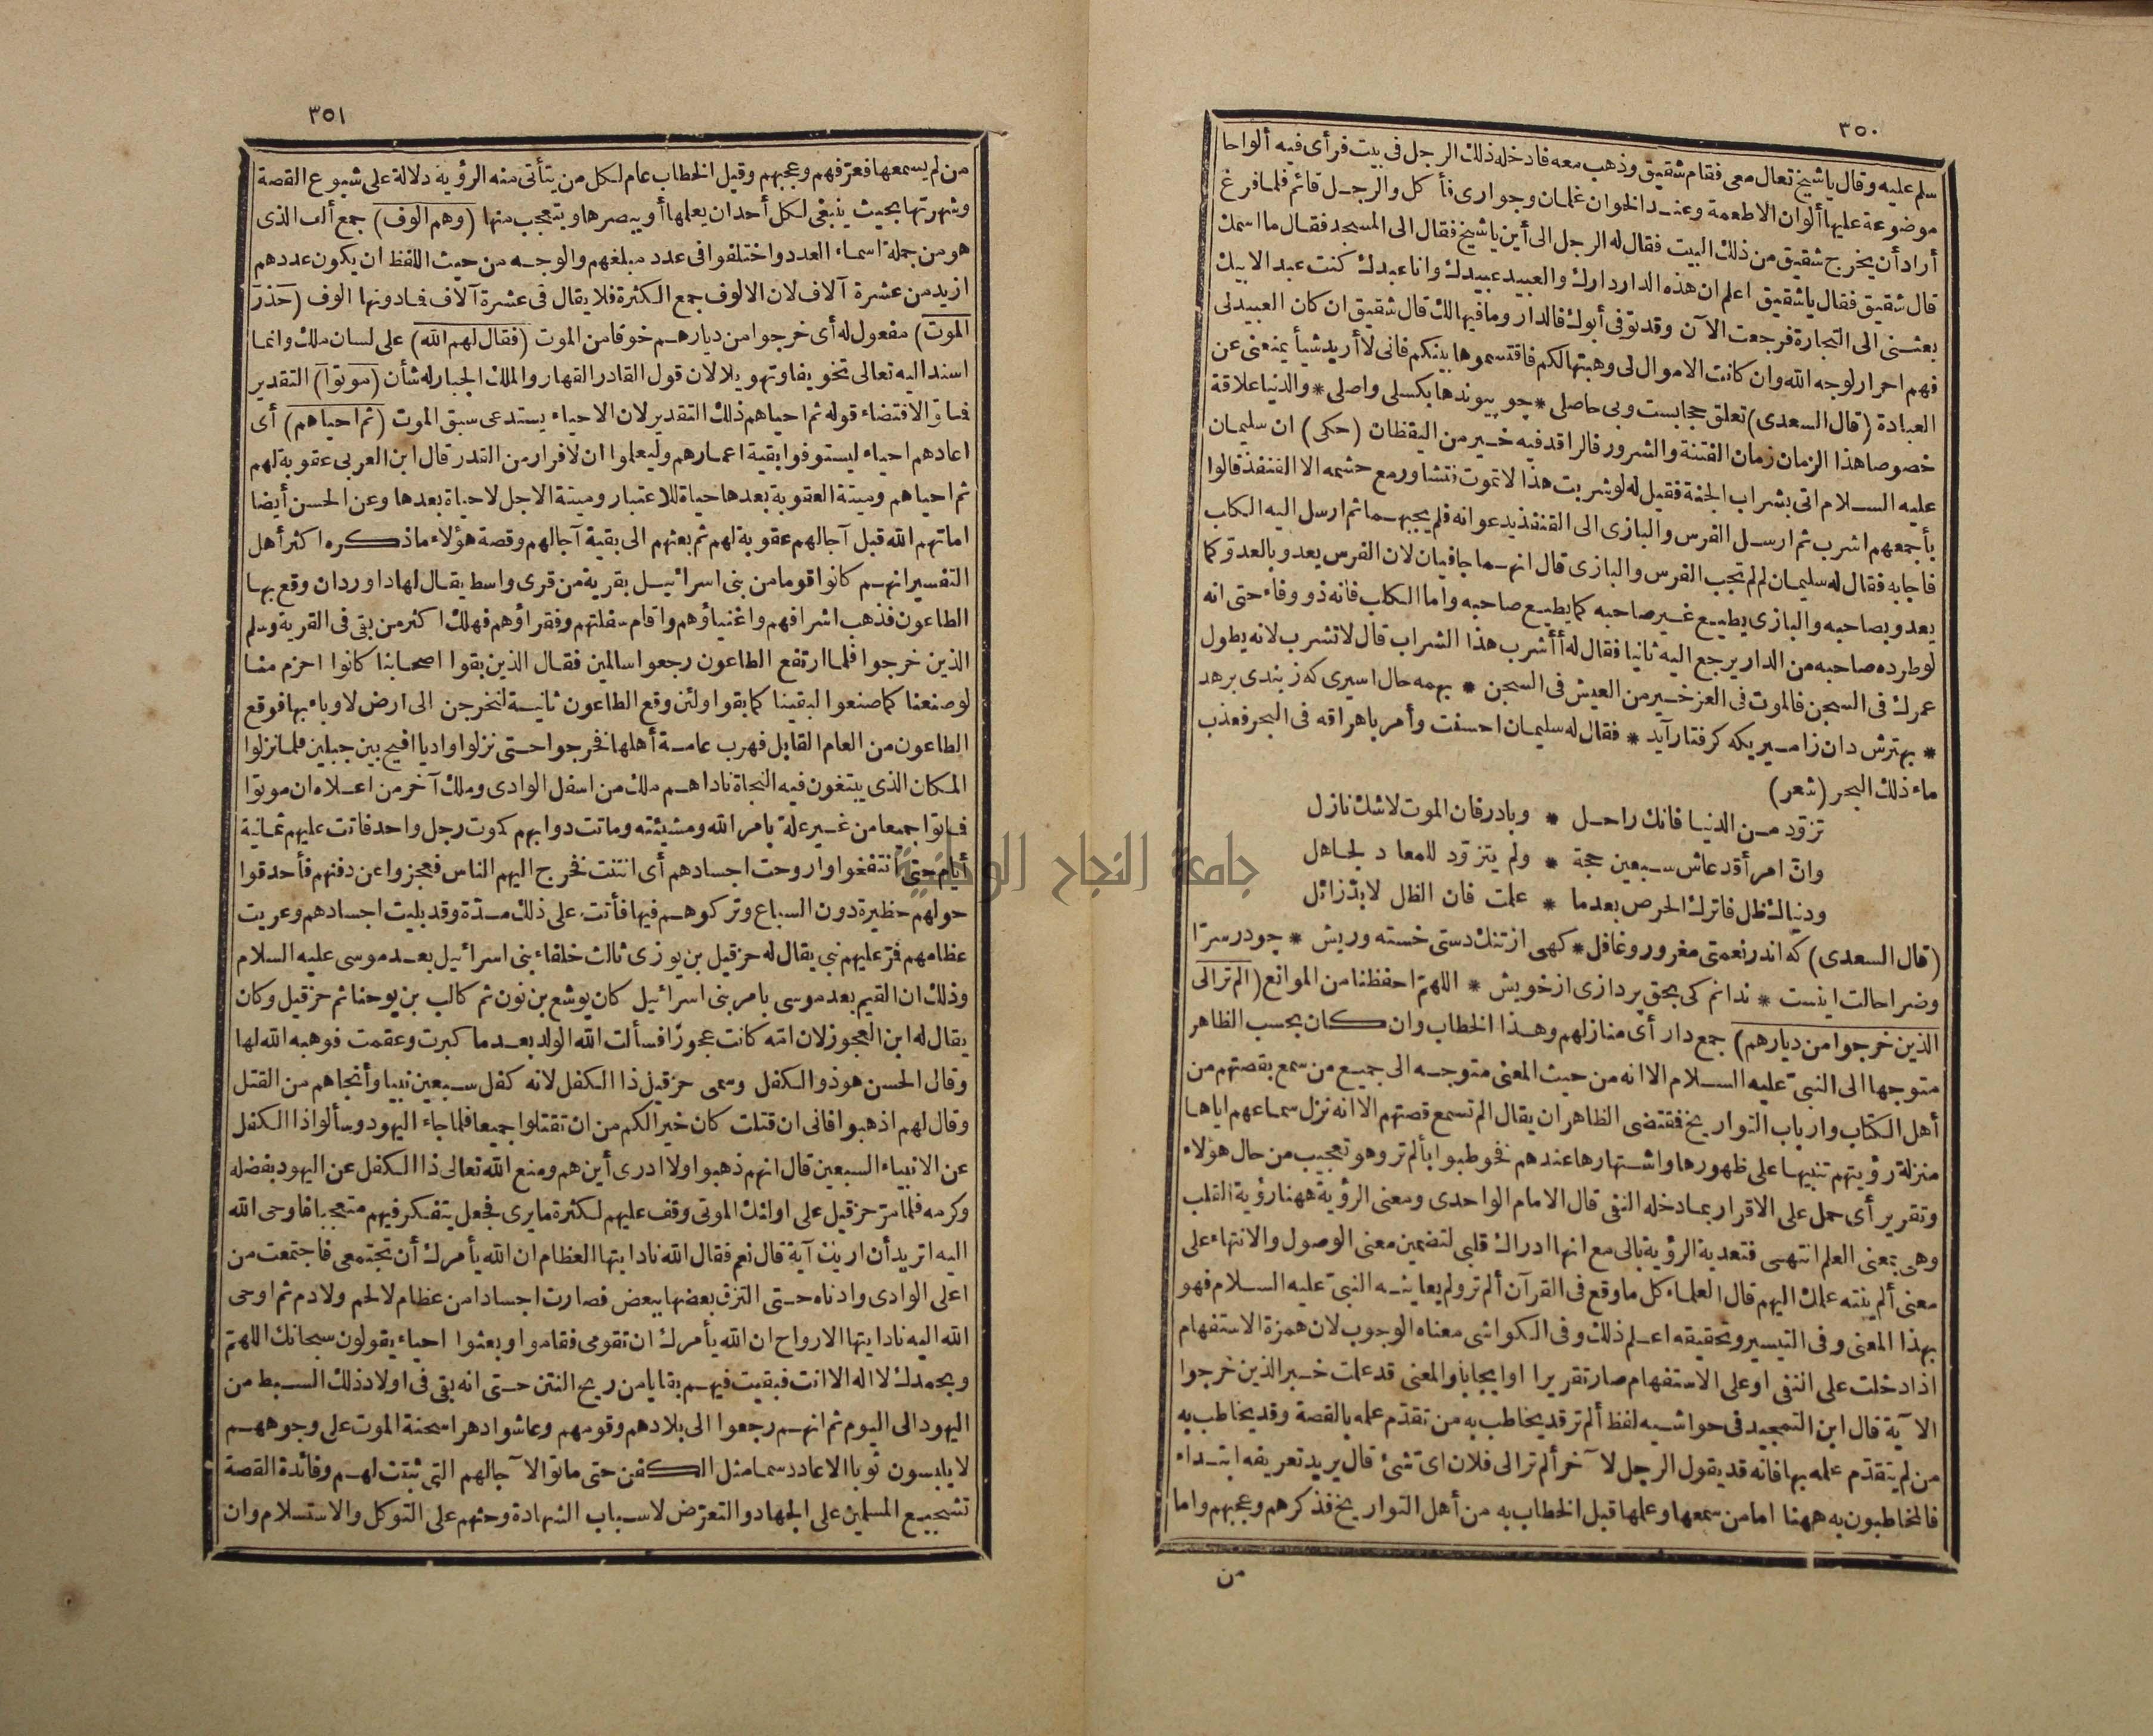 ٣٥٠
سلم عليه وقال يا شيخ تعال معى فقام شقيق وذهب معه فادخله ذلك الرجل فى بيت فرأى فيه ألواحا
موضوعة عليها ألوان الاطعمة وعند الخوان غلمان وجوارى فأكل والرجل قائم فلما فرغ
أراد أن يخرج شقيق من ذلك البيت فقال له الرجل الى أين يا شيخ فقال الى المسجد فقال ما اسمك
قال شقيق فقال يا شقيق اعلم ان هذه الدار دارك والعبيد عبيدك وانا عبدك كنت عبد الابيك
بعثنى الى التجارة فرجعت الآن وقد توفى أبوك فالدار وما فيها لك قال شقيق ان كان العبيد لى
فهم احرار لوجه الله وان كانت الاموال لى وهبتها لكم فاقتسموها بينكم فانى لا أريد شيأ يمنعنى عن
العبادة (قال السعدى) تعلق حجابست وبى حاصلى * چو پيوندها بكسلى واصلى * والدنيا علاقة
خصوصا هذا الزمان زمان الفتنة والشرور فالراقد فيه خير من اليقظان (حكى) ان سليمان
عليه السلام اتى بشراب الجنة فقيل له لو شربت هذا لا تموت فتشاور مع حشمه الا القنفذ قالوا
بأجمعهم اشرب ثم ارسل الفرس والبازى الى القنفذ يدعوانه فلم يجبهما ثم ارسل اليه الكلب
فاجابه فقال له سليمان لم لم تجب الفرس والبازى قال انهما جافيان لان الفرس يعدو بالعدو كما
يعدو بصاحبه والبازى يطيع غير صاحبه كما يطيع صاحبه واما الكلب فانه ذو وفاء حتى انه
لو طرده صاحبه من الدار يرجع اليه ثانيا فقال له أأشرب هذا الشراب قال لا تشرب لانه يطول
عمرك فى السجن فالموت فى العز خير من العيش فى السجن * بهمه حال اسيرى كه ز بندى برهد
* بهترش دان ز اميريكه كرفتار آيد * فقال له سليمان احسنت وأمر باهراقه فى البحر فعذب
ماء ذلك البحر (شعر)
تزوّد من الدنيا فانك راحل * وبادر فان الموت لا شك نازل
وان امرأ قد عاش سبعين حجة * ولم يتزوّد للمعاد لجاهل
ودنياك ظل فاترك الحرص بعدما * علمت فان الظل لا بدّ زائل
(قال السعدى) كه اندر نعمتى مغرور وغافل * كهى از تنك دستى خسته وريش * چو در سرّا
وضرا حالت اينست * ندانم كى بحق پردازى از خويش * اللهمّ احفظنا من الموانع (الم تر الى
الذين خرجوا من ديارهم) جمع دار أى منازلهم وهذا الخطاب وان كان بحسب الظاهر
متوجها الى النبىّ عليه السلام الا انه من حيث المعنى متوجه الى جميع من سمع بقصتهم من
أهل الكتاب وارباب التواريخ فمقتضى الظاهر ان يقال الم تسمع قصتهم الا انه نزل سماعهم اياها
منزلة رؤيتهم تنبيها على ظهورها واشتهارها عندهم فخوطبوا بألم تر وهو تعجيب من حال هؤلاء
وتقرير أى حمل على الاقرار بما دخله النفى قال الامام الواحدى ومعنى الرؤية ههنا رؤية القلب
وهى بمعنى العلم انتهى فتعدية الرؤية بالى مع انها ادراك قلبى لتضمين معنى الوصول والانتهاء على
معنى ألم ينته علمك اليهم قال العلماء كل ما وقع فى القرآن ألم تر ولم يعاينه النبىّ عليه السلام فهو
بهذا المعنى وفى التيسير وتحقيقه اعلم ذلك وفى الكواشى معناه الوجوب لان همزة الاستفهام
اذا دخلت على النفى او على الاستفهام صار تقريرا او ايجابا والمعنى قد علمت خبر الذين خرجوا
الآية قال ابن التمجيد فى حواشيه لفظ ألم تر قد يخاطب به من تقدّم علمه بالقصة وقد يخاطب به
من لم يتقدّم علمه بها فانه قد يقول الرجل لآخر ألم تر الى فلان اىّ شئ قال يريد تعريفه ابتداء
فالمخاطبون به ههنا اما من سمعها وعلمها قبل الخطاب به من أهل التواريخ فذكرهم وعجبهم واما
من
٣٥١
من لم يسمعها فعرّفهم وعجبهم وقيل الخطاب عام لكل من يتأتى منه الرؤية دلالة على شيوع القصة
وشهرتها بحيث ينبغى لكل أحد ان يعلمها أو يبصرها ويتعجب منها (وهم الوف) جمع ألف الذى
هو من جملة اسماء العدد واختلفوا فى عدد مبلغهم والوجه من حيث اللفظ ان يكون عددهم
ازيد من عشرة آلاف لان الالوف جمع الكثرة فلا يقال فى عشرة آلاف فما دونها الوف (حذر
الموت) مفعول له أى خرجوا من ديارهم خوفا من الموت (فقال لهم الله) على لسان ملك وانما
اسند اليه تعالى تخويفا وتهويلا لان قول القادر القهار والملك الجبار له شأن (موتوا) التقدير
فماتوا لاقتضاء قوله ثم احياهم ذلك التقدير لان الاحياء يستدعى سبق الموت (ثم احياهم) أى
اعادهم احياء ليستوفوا بقية اعمارهم وليعلموا ان لا فرار من القدر قال ابن العربى عقوبة لهم
ثم احياهم وميتة العقوبة بعدها حياة للاعتبار وميتة الاجل لا حياة بعدها وعن الحسن أيضا
اماتهم الله قبل آجالهم عقوبة لهم ثم بعثهم الى بقية آجالهم وقصة هؤلاء ما ذكره اكثر أهل
التفسير انهم كانوا قوما من بنى اسرائيل بقرية من قرى واسط يقال لها داوردان وقع بها
الطاعون فذهب اشرافهم واغنياؤهم واقام سفلتهم وفقراؤهم فهلك اكثر من بقى فى القرية وسلم
الذين خرجوا فلما ارتفع الطاعون رجعوا سالمين فقال الذين بقوا اصحابنا كانوا احزم منا
لو صنعنا كما صنعوا لبقينا كما بقوا ولئن وقع الطاعون ثانية لنخرجن الى ارض لا وباء بها فوقع
الطاعون من العام القابل فهرب عامة أهلها فخرجوا حتى نزلوا واديا افيح بين جبلين فلما نزلوا
المكان الذى يبتغون فيه النجاة ناداهم ملك من اسفل الوادى وملك آخر من اعلاه ان موتوا
فماتوا جميعا من غير علة بامر الله ومشيئته وماتت دوابهم كموت رجل واحد فاتت عليهم ثمانية
أيام حتى انتفخوا واروحت اجسادهم أى انتنت فخرج اليهم الناس فعجزوا عن دفنهم فأحدقوا
حولهم حظيرة دون السباع وتركوهم فيها فأتت على ذلك مدّة وقد بليت اجسادهم وعريت
عظامهم فمرّ عليهم نبى يقال له حزقيل بن يوزى ثالث خلفاء بنى اسرائيل بعد موسى عليه السلام
وذلك ان القيم بعد موسى بامر بنى اسرائيل كان يوشع بن نون ثم كالب بن يوحنا ثم حزقيل وكان
يقال له ابن العجوز لان امّه كانت عجوزا فسألت الله الولد بعدما كبرت وعقمت فوهبه الله لها
وقال الحسن هو ذو الكفل وسمى حزقيل ذا الكفل لانه كفل سبعين نبيا وأنجاهم من القتل
وقال لهم اذهبوا فانى ان قتلت كان خيرا لكم من ان تقتلوا جميعا فلما جاء اليهود وسألوا ذا الكفل
عن الانبياء السبعين قال انهم ذهبوا ولا ادرى أين هم ومنع الله تعالى ذا الكفل عن اليهود بفضله
وكرمه فلما مرّ حزقيل على اولئك الموتى وقف عليهم لكثرة ما يرى فجعل يتفكر فيهم متعجبا فاوحى الله
اليه اتريد أن اريك آية قال نعم فقال الله ناد ايتها العظام ان الله يأمرك أن تجتمعى فاجتمعت من
اعلى الوادى وادناه حتى التزق بعضها ببعض فصارت اجسادا من عظام لا لحم ولا دم ثم اوحى
الله اليه ناد ايتها الارواح ان الله يأمرك ان تقومى فقاموا وبعثوا احياء يقولون سبحانك اللهمّ
وبحمدك لا اله الا انت فبقيت فيهم بقايا من ريح النتن حتى انه بقى فى اولاد ذلك السبط من
اليهود الى اليوم ثم انهم رجعوا الى بلادهم وقومهم وعاشوا دهرا سحنة الموت على وجوههم
لا يلبسون ثوبا الا عاد دسما مثل الكفن حتى ماتوا لآجالهم التى ثبتت لهم وفائدة القصة
تشجيع المسلمين على الجهاد والتعرّض لاسباب الشهادة وحثهم على التوكل والاستسلام وان
جامعة النجاح الوطنية